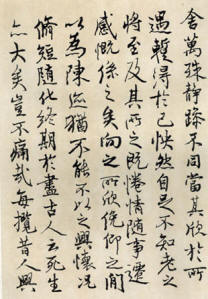 舍萬殊靜躁不同當其欣於所
遇蹔得於己怏然自足不知老之
將至及其所之既惓情隨事遷
感慨係之矣向之所欣俛仰之閒
以為陳迹猶不能不以之興懷況
脩短隨化終期於盡古人云死生
亦大矣豈不痛哉每攬昔人興